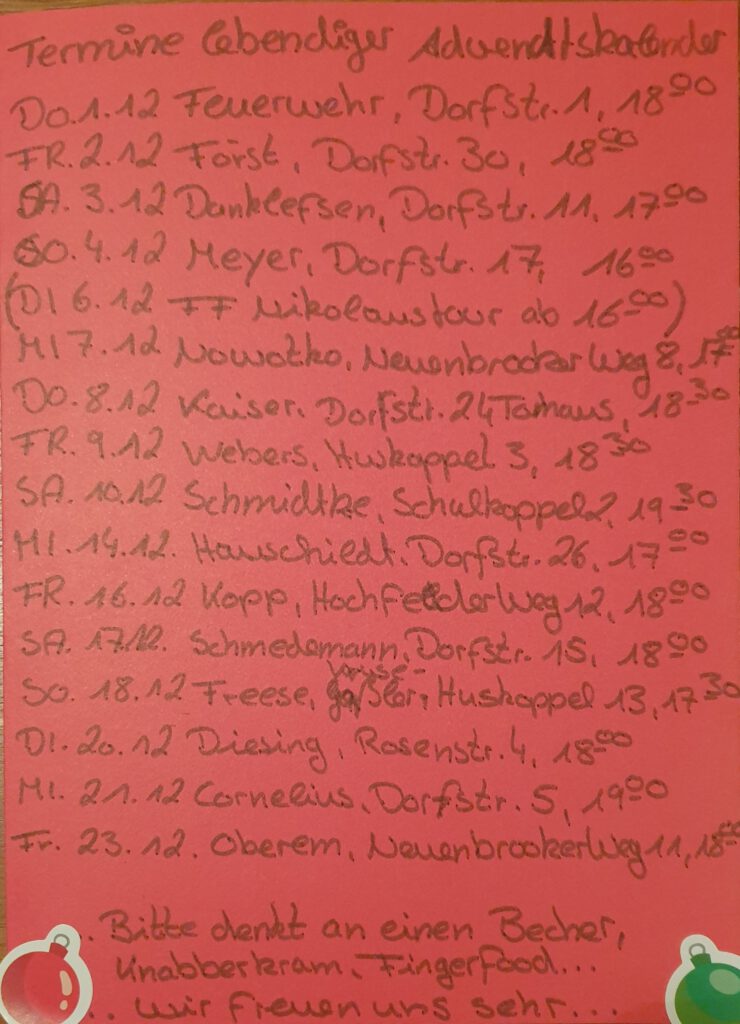 Termine lebendiger Adventskalender
Do. 1.12 Feuerwehr, Dorfstr. 1, 18⁰⁰
FR. 2.12 Först, Dorfstr. 30, 18⁰⁰
SA. 3.12 Danklefsen, Dorfstr. 11, 17⁰⁰
SO. 4.12 Meyer, Dorfstr. 17, 16⁰⁰
(DI 6.12 FF Nikolaustour ab 16⁰⁰)
MI 7.12 Nowotko, Neuenbrooker Weg 8, 17⁰⁰
DO. 8.12 Kaiser, Dorfstr. 24 Torhaus, 18³⁰
FR. 9.12 Webers, Huskoppel 3, 18³⁰
SA. 10.12 Schmidtke, Schulkoppel 2, 19³⁰
MI. 14.12. Hauschildt, Dorfstr. 26, 17⁰⁰
FR. 16.12 Kopp, Hochfelder Weg 12, 18⁰⁰
SA. 17.12. Schmedemann, Dorfstr. 15, 18⁰⁰
SO. 18.12 Freese, Huskoppel 13, 17³⁰
DI. 20.12 Diesing, Rosenstr. 4, 18⁰⁰
MI. 21.12 Cornelius, Dorfstr. 5, 19⁰⁰
Fr. 23.12. Oberem, Neuenbrooker Weg 11, 18⁰⁰
.. Bitte denkt an einen Becher,
Knabberkram, Fingerfood...
.. wir freuen uns sehr...